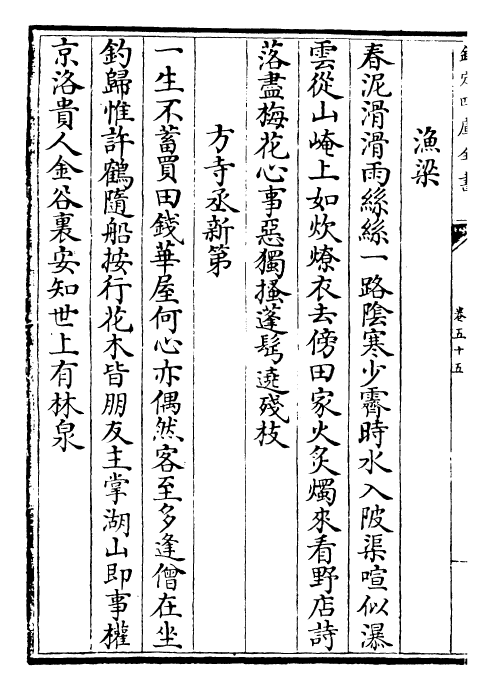 欽定四庫全書
卷五十五
漁梁
春泥滑滑雨絲絲一路陰寒少霽時水入陂渠喧似瀑
雲從山崦上如炊燎衣去傍田家火炙燭來看野店詩
落盡梅花心事惡獨搔蓬鬂遶殘枝
方寺丞新第
一生不蓄買田錢華屋何心亦偶然客至多逢僧在坐
釣歸惟許鶴隨船按行花木皆朋友主掌湖山即事權
京洛貴人金谷裏安知世上有林泉